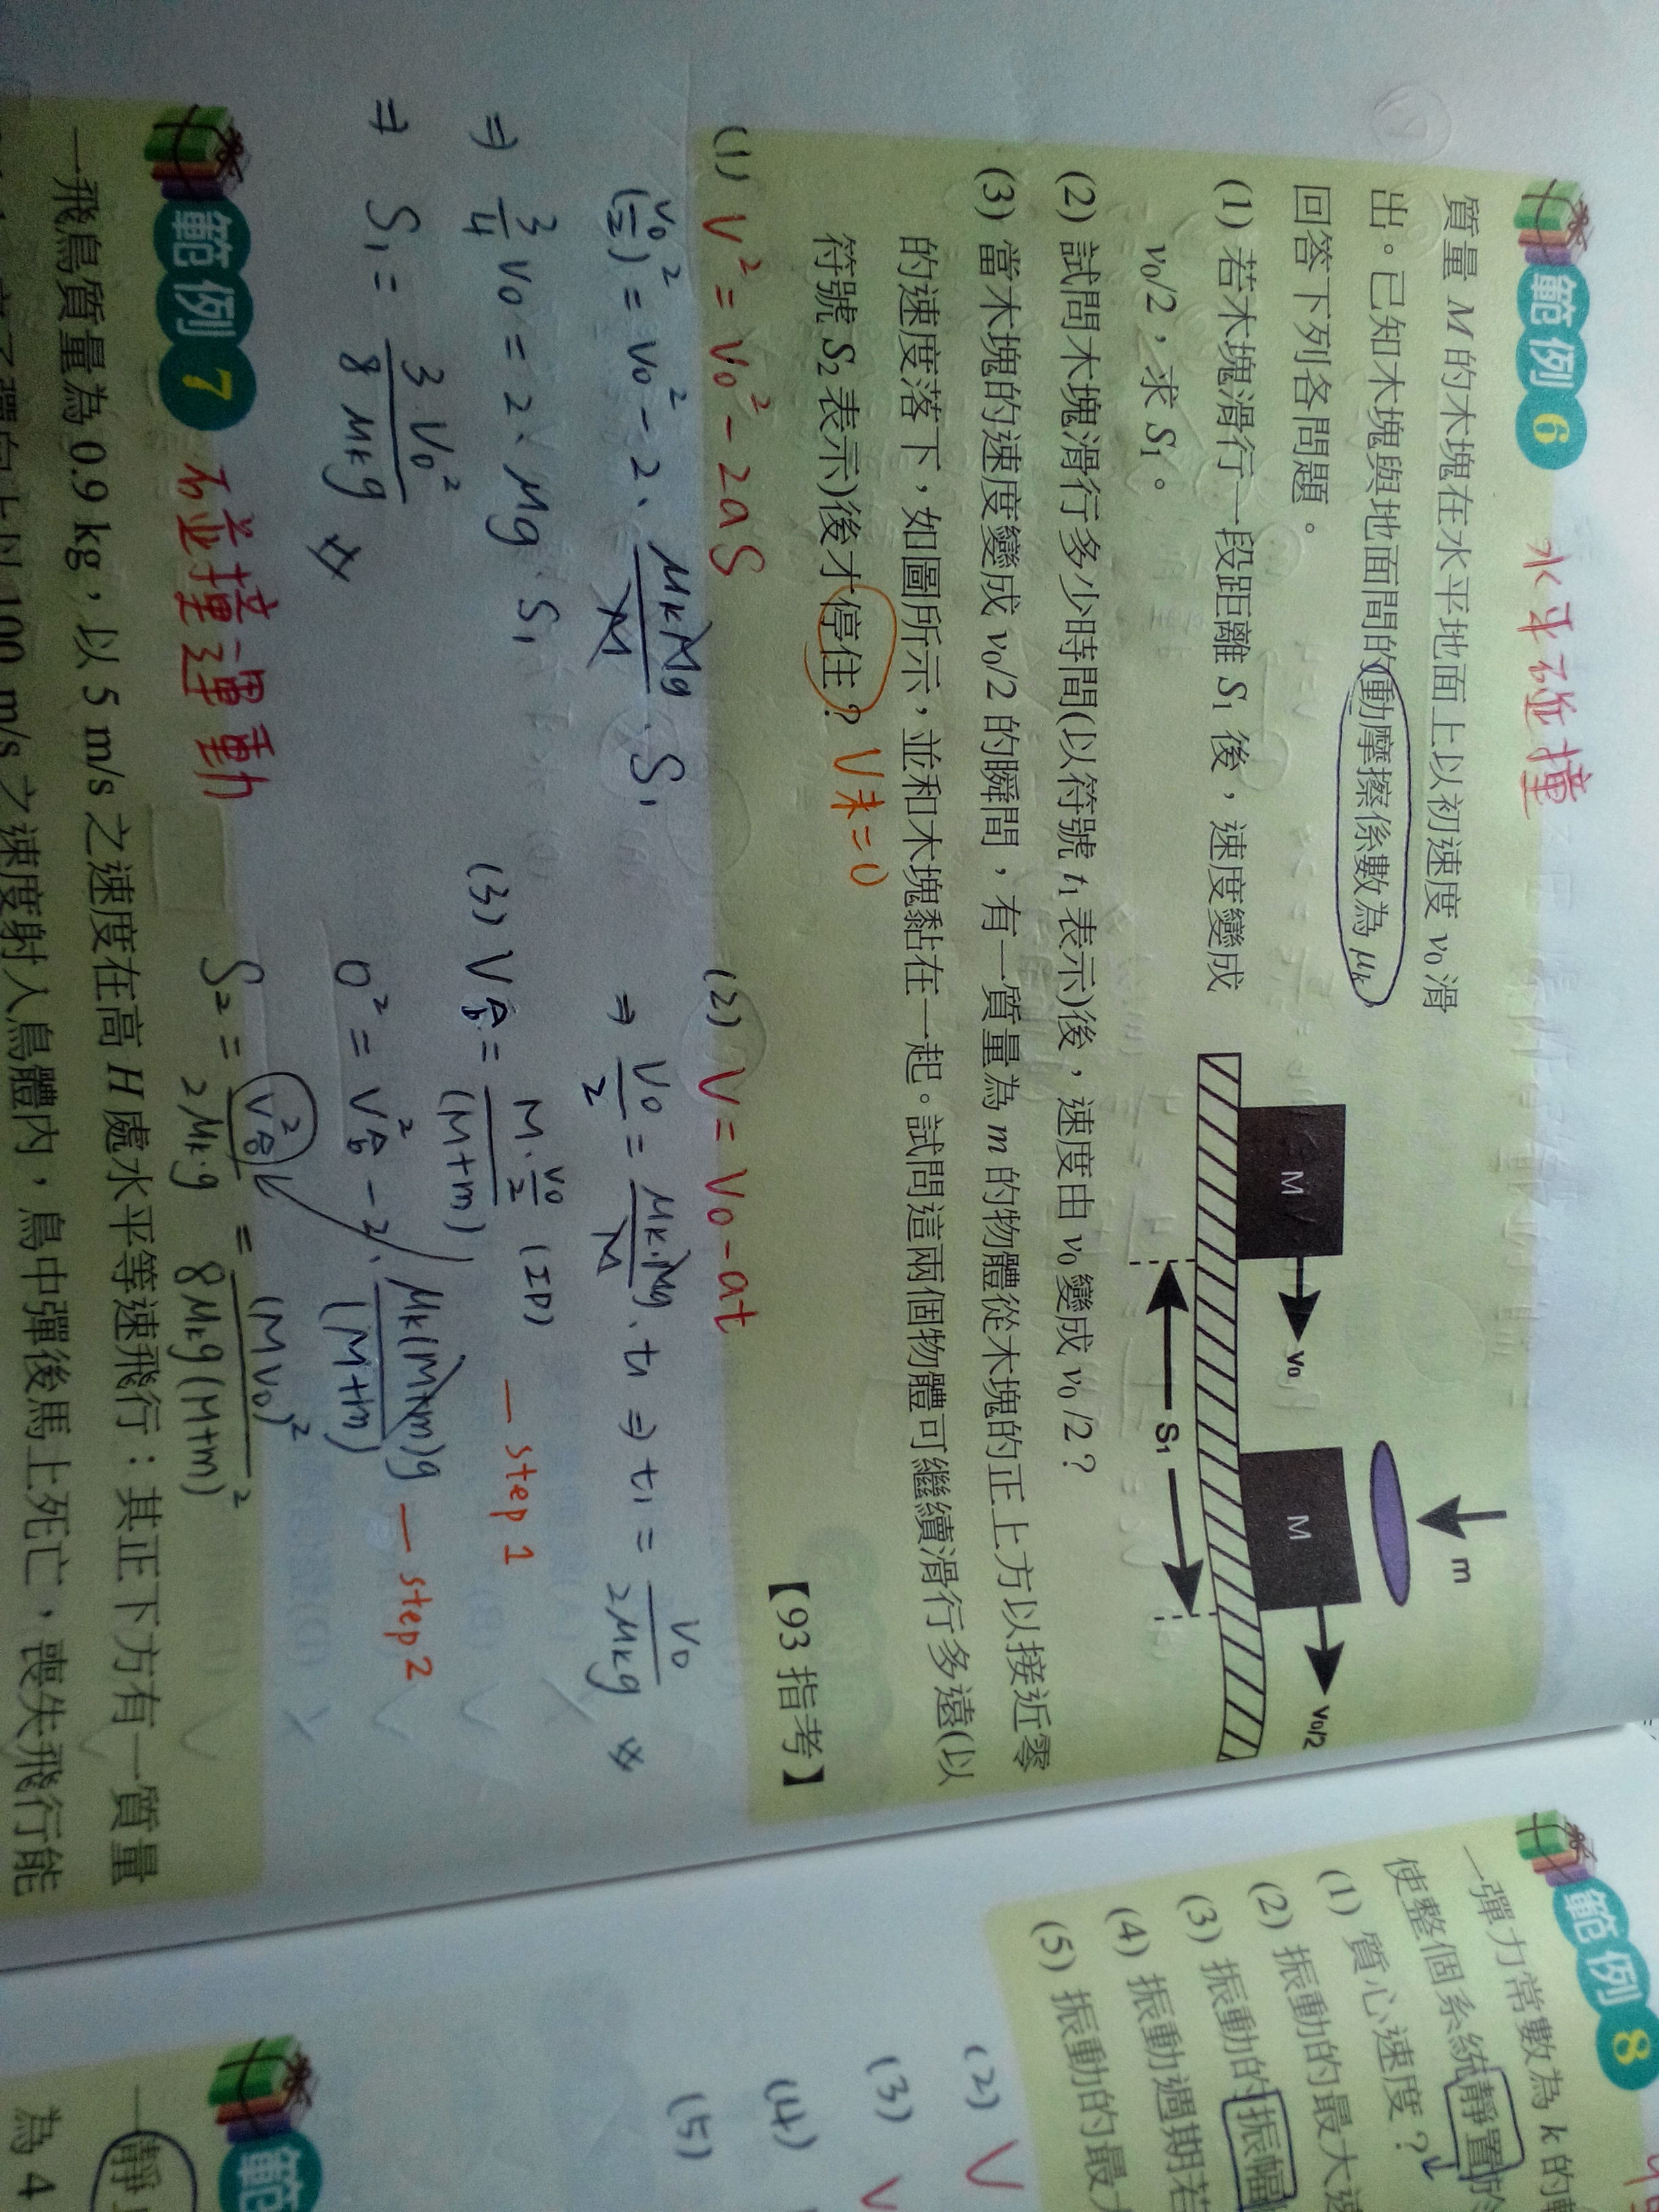 範例 6 水平碰撞
質量 M 的木塊在水平地面上以初速度 v₀ 滑
出。已知木塊與地面間的動摩擦係數為 μₖ,
回答下列各問題。
(1) 若木塊滑行一段距離 S₁ 後,速度變成
v₀/2,求 S₁。
M
v₀
S₁
M
v₀/2
m
(2) 試問木塊滑行多少時間(以符號 t₁ 表示)後,速度由 v₀ 變成 v₀/2?
(3) 當木塊的速度變成 v₀/2 的瞬間,有一質量為 m 的物體從木塊的正上方以接近零
的速度落下,如圖所示,並和木塊黏在一起。試問這兩個物體可繼續滑行多遠(以
符號 S₂ 表示)後才停住? V末=0
【93 指考】
(1) V² = V₀² - 2aS
(V₀/2)² = V₀² - 2·(μₖMg/M)·S₁
⇒ 3/4 V₀ = 2·μg·S₁
⇒ S₁ = 3V₀²/8μₖg
(2) V = V₀ - at
⇒ V₀/2 = (μₖ·Mg/M)·t₁ ⇒ t₁ = V₀/2μₖg
(3) V合 = M·(V₀/2)/(M+m) (1D) — step 1
0² = V合² - 2·μₖ(M+m)g/(M+m) — step 2
S₂ = V合²/2μₖ·g = (MV₀)²/8μₖg(M+m)²
範例 7 碰撞運動
一飛鳥質量為 0.9 kg,以 5 m/s 之速度在高 H 處水平等速飛行:其正下方有一質量
100 m/s 之速度射入鳥體內,鳥中彈後馬上死亡,喪失飛行能
範例 8
一彈力常數為 k 的
使整個系統靜置於
(1) 質心速度?
(2) 振動的最大速
(3) 振動的振幅
(4) 振動週期若
(5) 振動的最大
(2) V
(3) V
(4)
(5)
範
一靜
為 4